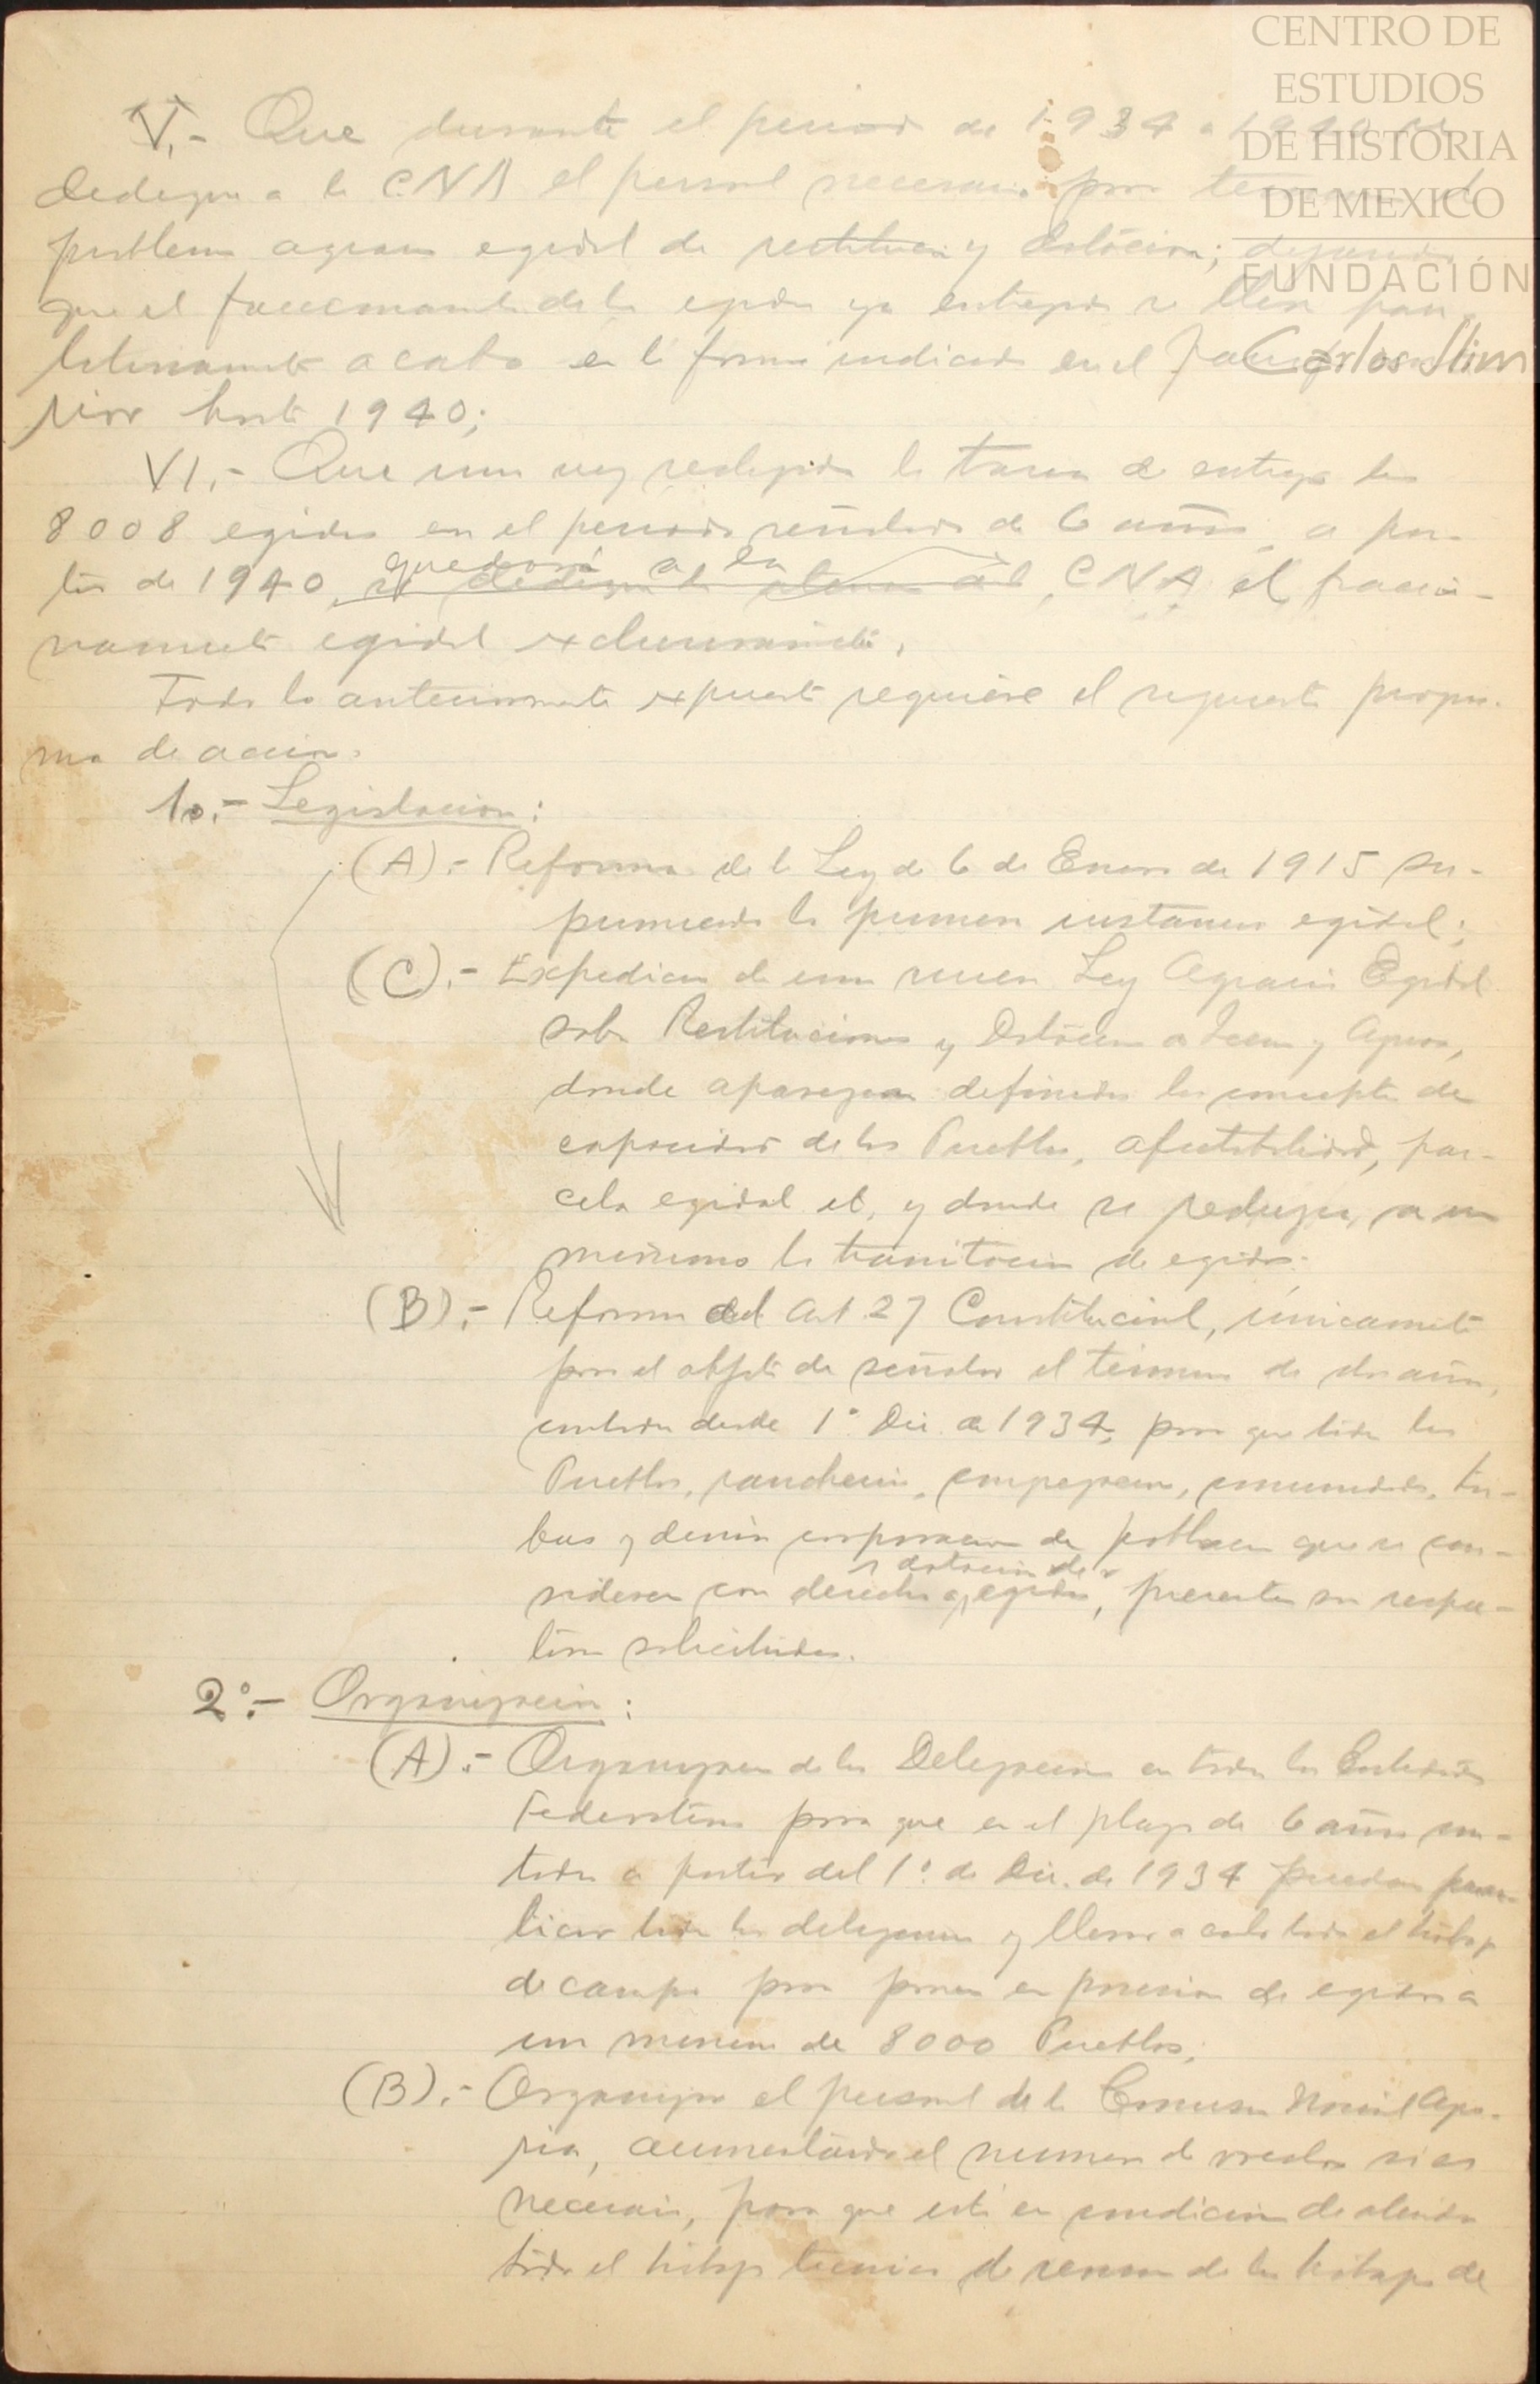 CENTRO DE
ESTUDIOS
DE HISTORIA
DE MEXICO
FUNDACIÓN
Carlos Slim
V.- Que durante el periodo de 1934 a 1940 se
dedique a la CNA el personal necesario para el
problema agrario egidal de restitucion y dotación; dejando
que el fraccionamiento de los egidos ya entregados se lleve pau-
latinamente a cabo en la forma indicada en el
rior hasta 1940;
VI.- Que una vez la tarea de entregar los
8008 egidos en el periodo señalado de 6 años, a par-
quedará a la
tir de 1940, CNA el fraccio-
namiento egidal exclusivamente.
Todo lo anteriormente expuesto requiere el siguiente progra-
ma de accion.
1o.- Legislacion:
(A).- Reforma de la Ley de 6 de Enero de 1915 su-
primiendo la primera instancia egidal;
(C).- Expedicion de una nueva Ley Agraria Egidal
sobre Restituciones y Dotación de y Aguas,
donde aparezcan definidos los conceptos de
capacidad de los Pueblos, afectabilidad, par-
cela egidal etc, y donde se reduzca, a un
minimo la tramitacion de egidos.
(B).- Reforma del Art 27 Constitucional, únicamente
para el objeto de señalar el término de dos años,
contados desde 1° Dic. de 1934, para que todos los
Pueblos, rancherias, congregaciones, comunidades, tri-
bus y demás corporaciones de poblacion que se con-
dotacion de
sideren con derecho a egidos, presenten sus respec-
tivas solicitudes.
2°.- Organizacion:
(A).- Organizacion de las Delegaciones en todas las Entidades
Federativas para que en el plazo de 6 años con-
tados a partir del 1° de Dic. de 1934 puedan prac-
ticar todas las y llevar a cabo todo el trabajo
de campo para poner en posesion de egidos a
un numero de 8000 Pueblos;
(B).- Organizar el personal de la Comision Nacional Agra-
ria, aumentando el numero de vocales si es
necesario, para que esté en condiciones de atender
todo el trabajo tecnico de revision de los trabajos de